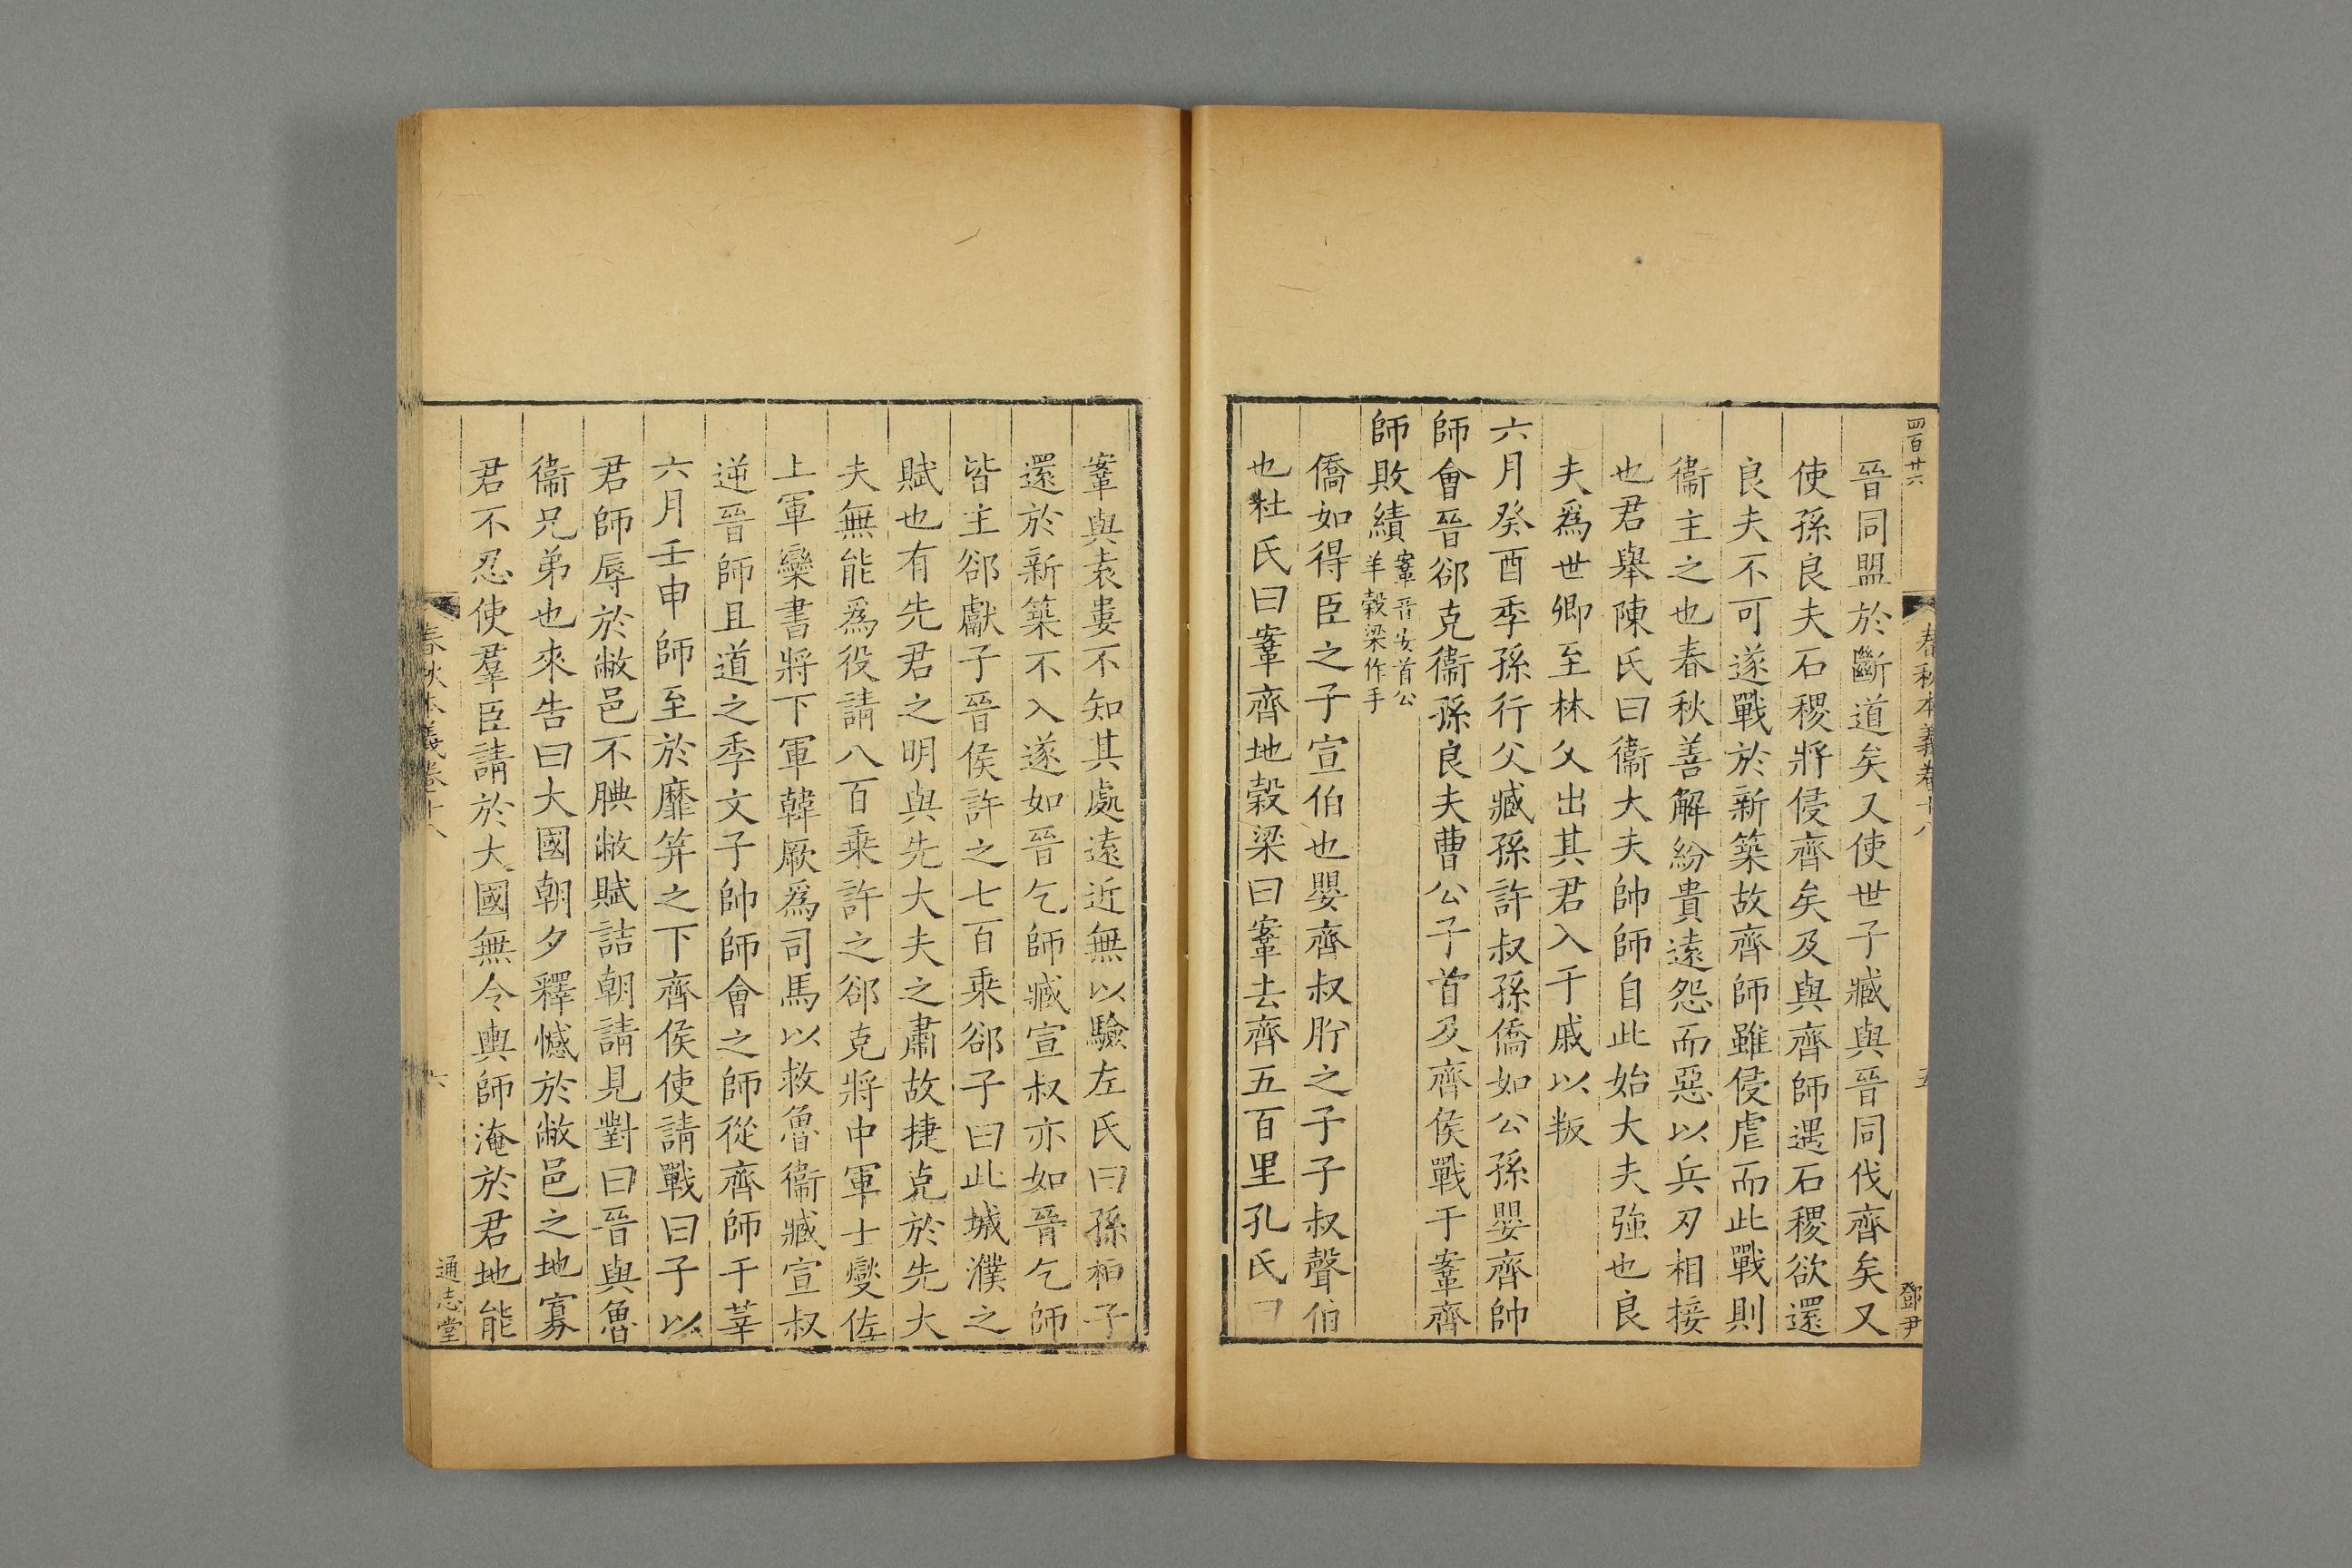 四百廿六
春秋本義卷十八
五
鄧尹
晉同盟於斷道矣又使世子臧與晉同伐齊矣又
使孫良夫石稷將侵齊矣及與齊師遇石稷欲還
良夫不可遂戰於新築故齊師雖侵虐而此戰則
衞主之也春秋善解紛貴遠怨而惡以兵刃相接
也君舉陳氏曰衞大夫帥師自此始大夫強也良
夫爲世卿至林父出其君入于戚以叛
六月癸酉季孫行父臧孫許叔孫僑如公孫嬰齊帥
師會晉郤克衞孫良夫曹公子首及齊侯戰于鞌齊
師敗績鞌音安首公
羊穀梁作手
僑如得臣之子宣伯也嬰齊叔肸之子子叔聲伯
也杜氏曰鞌齊地穀梁曰鞌去齊五百里孔氏曰
鞌與袁婁不知其處遠近無以驗左氏曰孫桓子
還於新築不入遂如晉乞師臧宣叔亦如晉乞師
皆主郤獻子晉侯許之七百乘郤子曰此城濮之
賦也有先君之明與先大夫之肅故捷克於先大
夫無能爲役請八百乘許之郤克將中軍士燮佐
上軍欒書將下軍韓厥爲司馬以救魯衞臧宣叔
逆晉師且道之季文子帥師會之師從齊師于莘
六月壬申師至於靡笄之下齊侯使請戰曰子以
君師辱於敝邑不腆敝賦詰朝請見對曰晉與魯
衞兄弟也來告曰大國朝夕釋憾於敝邑之地寡
君不忍使羣臣請於大國無令輿師淹於君地能
春秋本義卷十八
六
通志堂